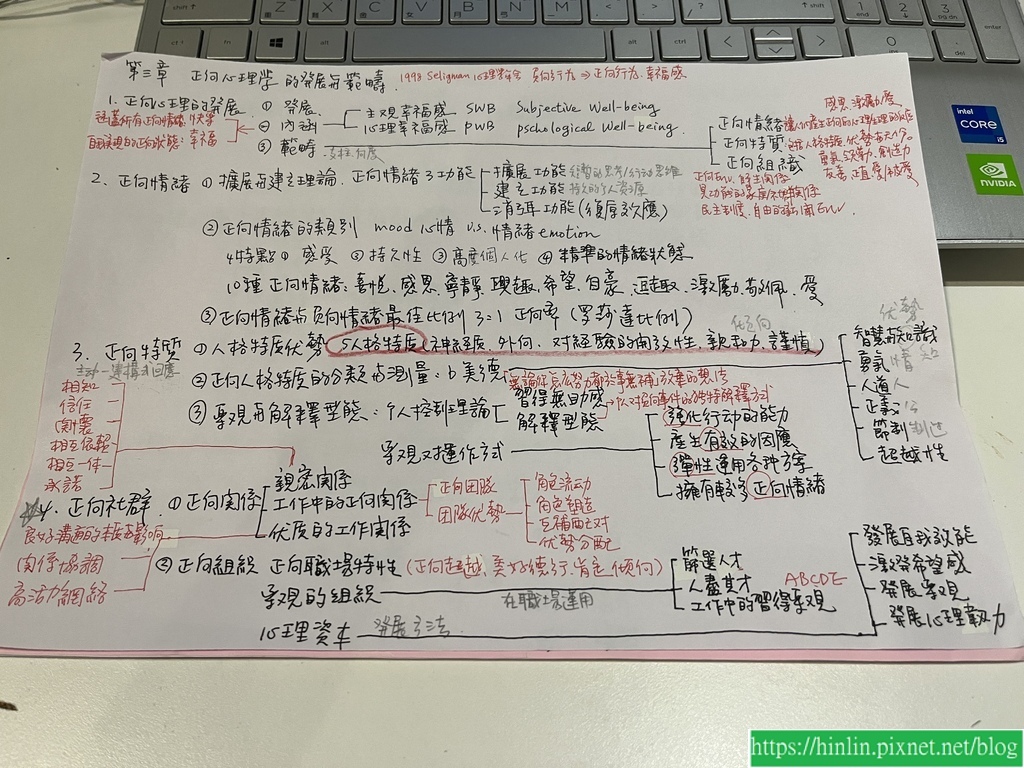 第三章 正向心理学的發展与範疇 1998 Seligman 心理學會 負向行為⇒正向行為.幸福感
1. 正向心理的發展 ① 發展
② 內涵 主观幸福感 SWB Subjective Well-being
心理幸福感 PWB pschological Well-being
涵蓋所有正向情緒
自我实现的正向狀態:幸福
③ 範疇
正向情緒
正向特質
正向組織
感恩、激勵
勇氣
民主制度、自由的
2. 正向情緒 ① 擴展与建立理論. 正向情緒3功能
擴展功能
建立功能
消弭功能(復原效應)
② 正向情緒的類別 mood 心情 v.s. 情緒 emotion
4特點 ① 感受 ② 持久性 ③ 高度個人化 ④ 精準的情緒狀態
10種正向情緒:喜悦、感恩、寧靜、興趣、希望、自豪、逗趣、激勵、敬佩、愛
③ 正向情緒与負向情緒最佳比例 3:1 正向率 (罗莎達比例)
3. 正向特質 ① 人格特質优勢 5人格特質(神經質、外向、對經驗的開放性、親和力、謹慎)
主动一建構式回應
② 正向人格特質的分類与測量:6美德
优勢
智慧與知識
勇氣 情
人道 人
正義 公
節制
超越性
③ 樂观与解釋型態:个人控制理論
習得無助感
解釋型態
樂观又運作方式
強化行动的能力
產生有效的因應
彈性運用各种方案
擁有較多正向情緒
相知
信任
関懷
相互依賴
相互一体
承諾
4. 正向社群 ① 正向関係
親密関係
工作中的正向関係
优质的工作関係
正向团隊
团隊优勢
角色流动
角色塑造
互補配对
优勢分配
関係協調
高活力網絡
② 正向組織 正向職場特性 (正向超越、美好德行、肯定傾向)
樂观的組織 在職場運用
篩選人才
人盡其才
工作中的習得樂观 ABCDE
心理資本 發展方法
發展自我效能
激發希望感
發展樂观
發展心理韌力
intel
CORE
i5
NVIDIA
https://hinlin.pixnet.net/blog